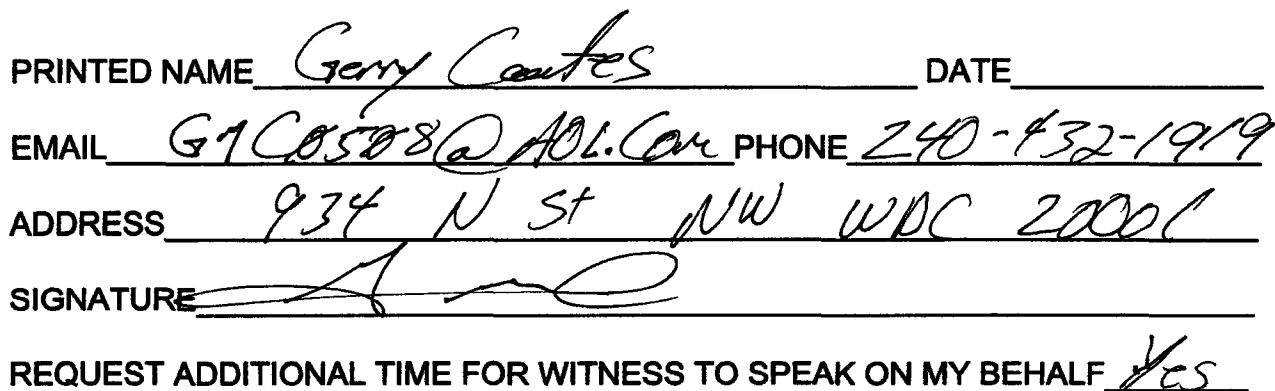 PRINTED NAME Gerry Coates DATE
EMAIL G7C0508@AOL.Com PHONE 240-432-1919
ADDRESS 934 N St NW WDC 20001
SIGNATURE
REQUEST ADDITIONAL TIME FOR WITNESS TO SPEAK ON MY BEHALF Yes